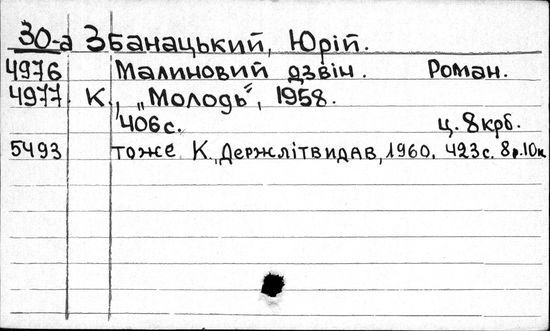 30-а Збанацький, Юрій.
4976 Малиновий дзвін. Роман.
4977 К., „Молодь", 1958.
406с. ц. 8крб.
5493 тоже К., Держлітвидав, 1960. 423с. 8р.10к